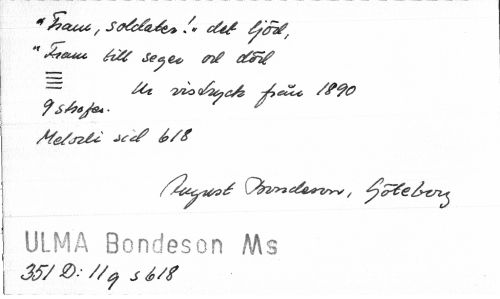 "Fram, soldater!" det ljöd,
"Fram till seger och död
Ur visdryck från 1890
9 strofer.
Melodi sid 618
August Bondeson, Göteborg
ULMA Bondeson Ms
351 D: 11 q s 618